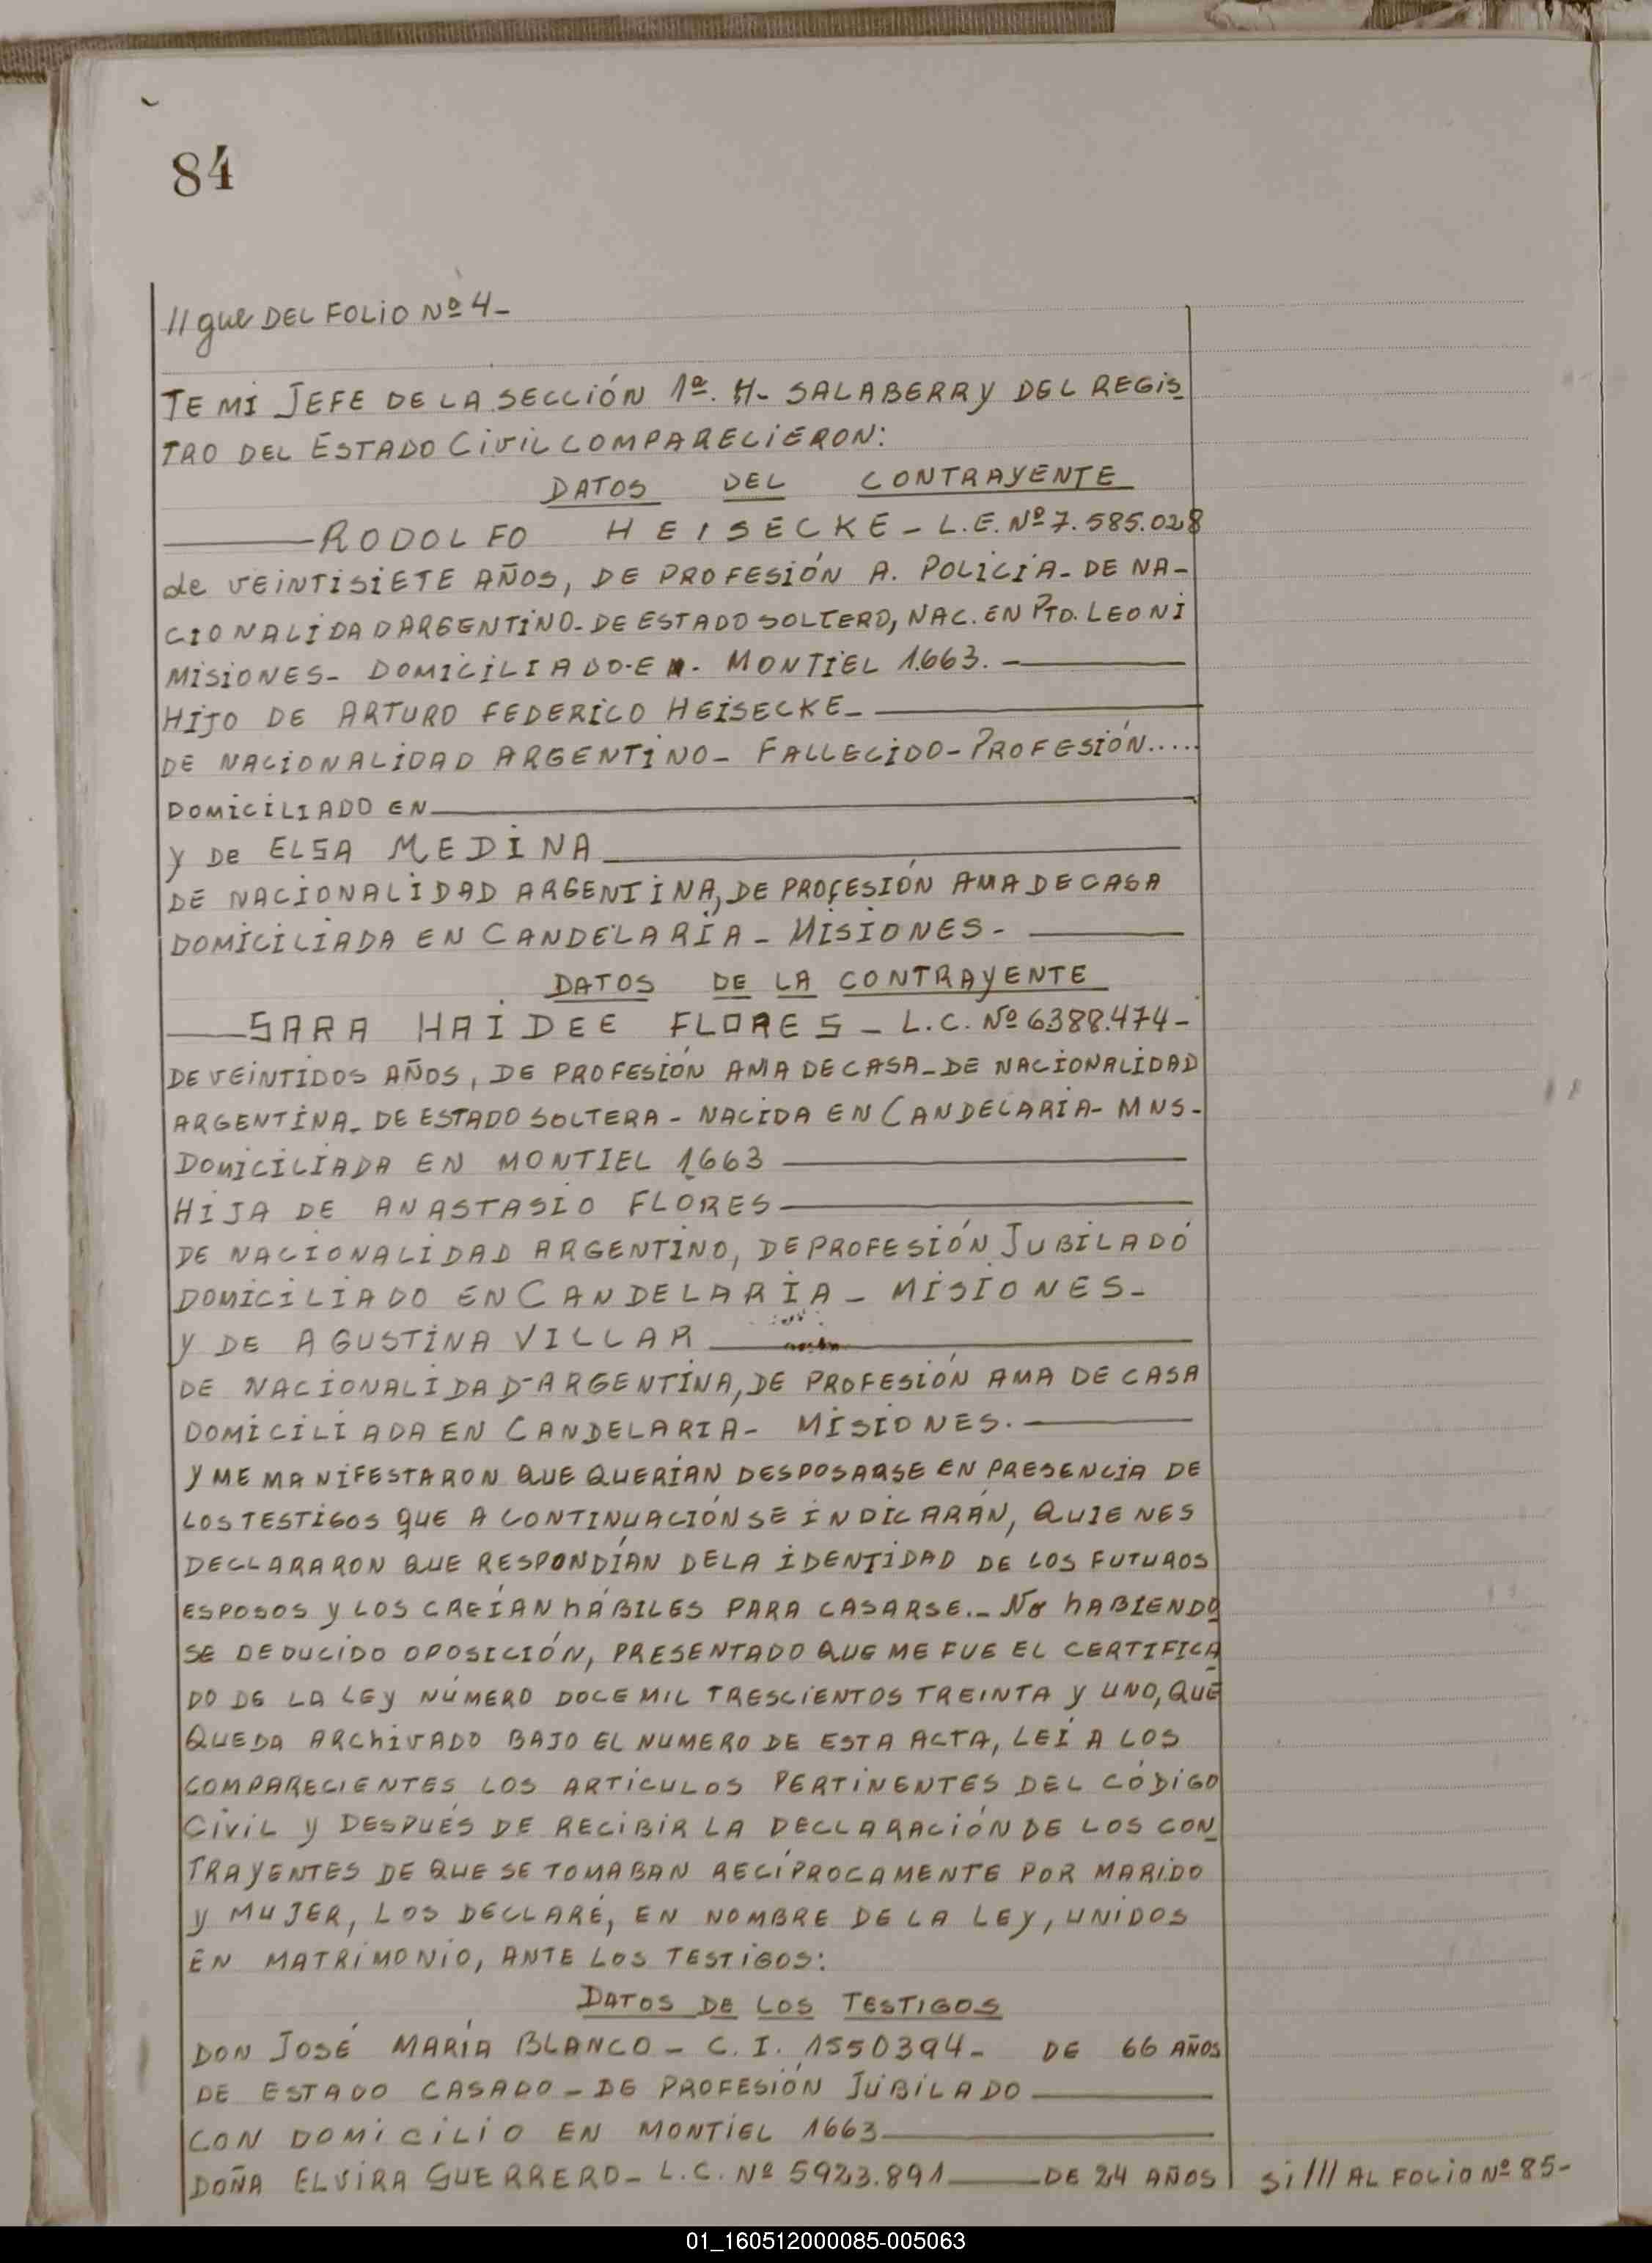 84
// gue DEL FOLIO Nº 4-
TE MI JEFE DE LA SECCIÓN 1ª. H- SALABERRY DEL REGIS
TRO DEL ESTADO CIVIL COMPARECIERON:
DATOS DEL CONTRAYENTE
RODOLFO HEISECKE - L.E. Nº 7.585.028
de VEINTISIETE AÑOS, DE PROFESIÓN A. POLICIA- DE NA-
CIONALIDAD ARGENTINO- DE ESTADO SOLTERO, NAC. EN PTO. LEONI
MISIONES- DOMICILIADO-EN. MONTIEL 1.663.-
HIJO DE ARTURO FEDERICO HEISECKE-
DE NACIONALIDAD ARGENTINO- FALLECIDO- PROFESIÓN.....
DOMICILIADO EN
Y DE ELSA MEDINA
DE NACIONALIDAD ARGENTINA, DE PROFESIÓN AMA DE CASA
DOMICILIADA EN CANDELARÍA - MISIONES-
DATOS DE LA CONTRAYENTE
SARA HAIDEE FLORES - L.C. Nº 6388.474-
DE VEINTIDOS AÑOS, DE PROFESIÓN AMA DE CASA- DE NACIONALIDAD
ARGENTINA- DE ESTADO SOLTERA - NACIDA EN CANDELARIA- MNS-
DOMICILIADA EN MONTIEL 1663
HIJA DE ANASTASIO FLORES
DE NACIONALIDAD ARGENTINO, DE PROFESIÓN JUBILADO
DOMICILIADO EN CANDELARIA - MISIONES-
Y DE AGUSTINA VILLAR
DE NACIONALIDAD-ARGENTINA, DE PROFESIÓN AMA DE CASA
DOMICILIADA EN CANDELARIA- MISIONES.
Y ME MANIFESTARON QUE QUERÍAN DESPOSARSE EN PRESENCIA DE
LOS TESTIGOS QUE A CONTINUACIÓN SE INDICARÁN, QUIENES
DECLARARON QUE RESPONDÍAN DE LA IDENTIDAD DE LOS FUTUROS
ESPOSOS Y LOS CREÍAN HÁBILES PARA CASARSE.- NO HABIENDO
SE DEDUCIDO OPOSICIÓN, PRESENTADO QUE ME FUE EL CERTIFICA
DO DE LA LEY NÚMERO DOCE MIL TRESCIENTOS TREINTA Y UNO, QUE
QUEDA ARCHIVADO BAJO EL NUMERO DE ESTA ACTA, LEÍ A LOS
COMPARECIENTES LOS ARTÍCULOS PERTINENTES DEL CÓDIGO
CIVIL Y DESPUÉS DE RECIBIR LA DECLARACIÓN DE LOS CON
TRAYENTES DE QUE SE TOMABAN RECÍPROCAMENTE POR MARIDO
Y MUJER, LOS DECLARÉ, EN NOMBRE DE LA LEY, UNIDOS
EN MATRIMONIO, ANTE LOS TESTIGOS:
DATOS DE LOS TESTIGOS
DON JOSÉ MARÍA BLANCO - C.I. 1550394- DE 66 AÑOS
DE ESTADO CASADO - DE PROFESIÓN JUBILADO
CON DOMICILIO EN MONTIEL 1663
DOÑA ELVIRA GUERRERO- L.C. Nº 5923.891 DE 24 AÑOS
Si /// AL FOLIO Nº 85-
01_160512000085-005063